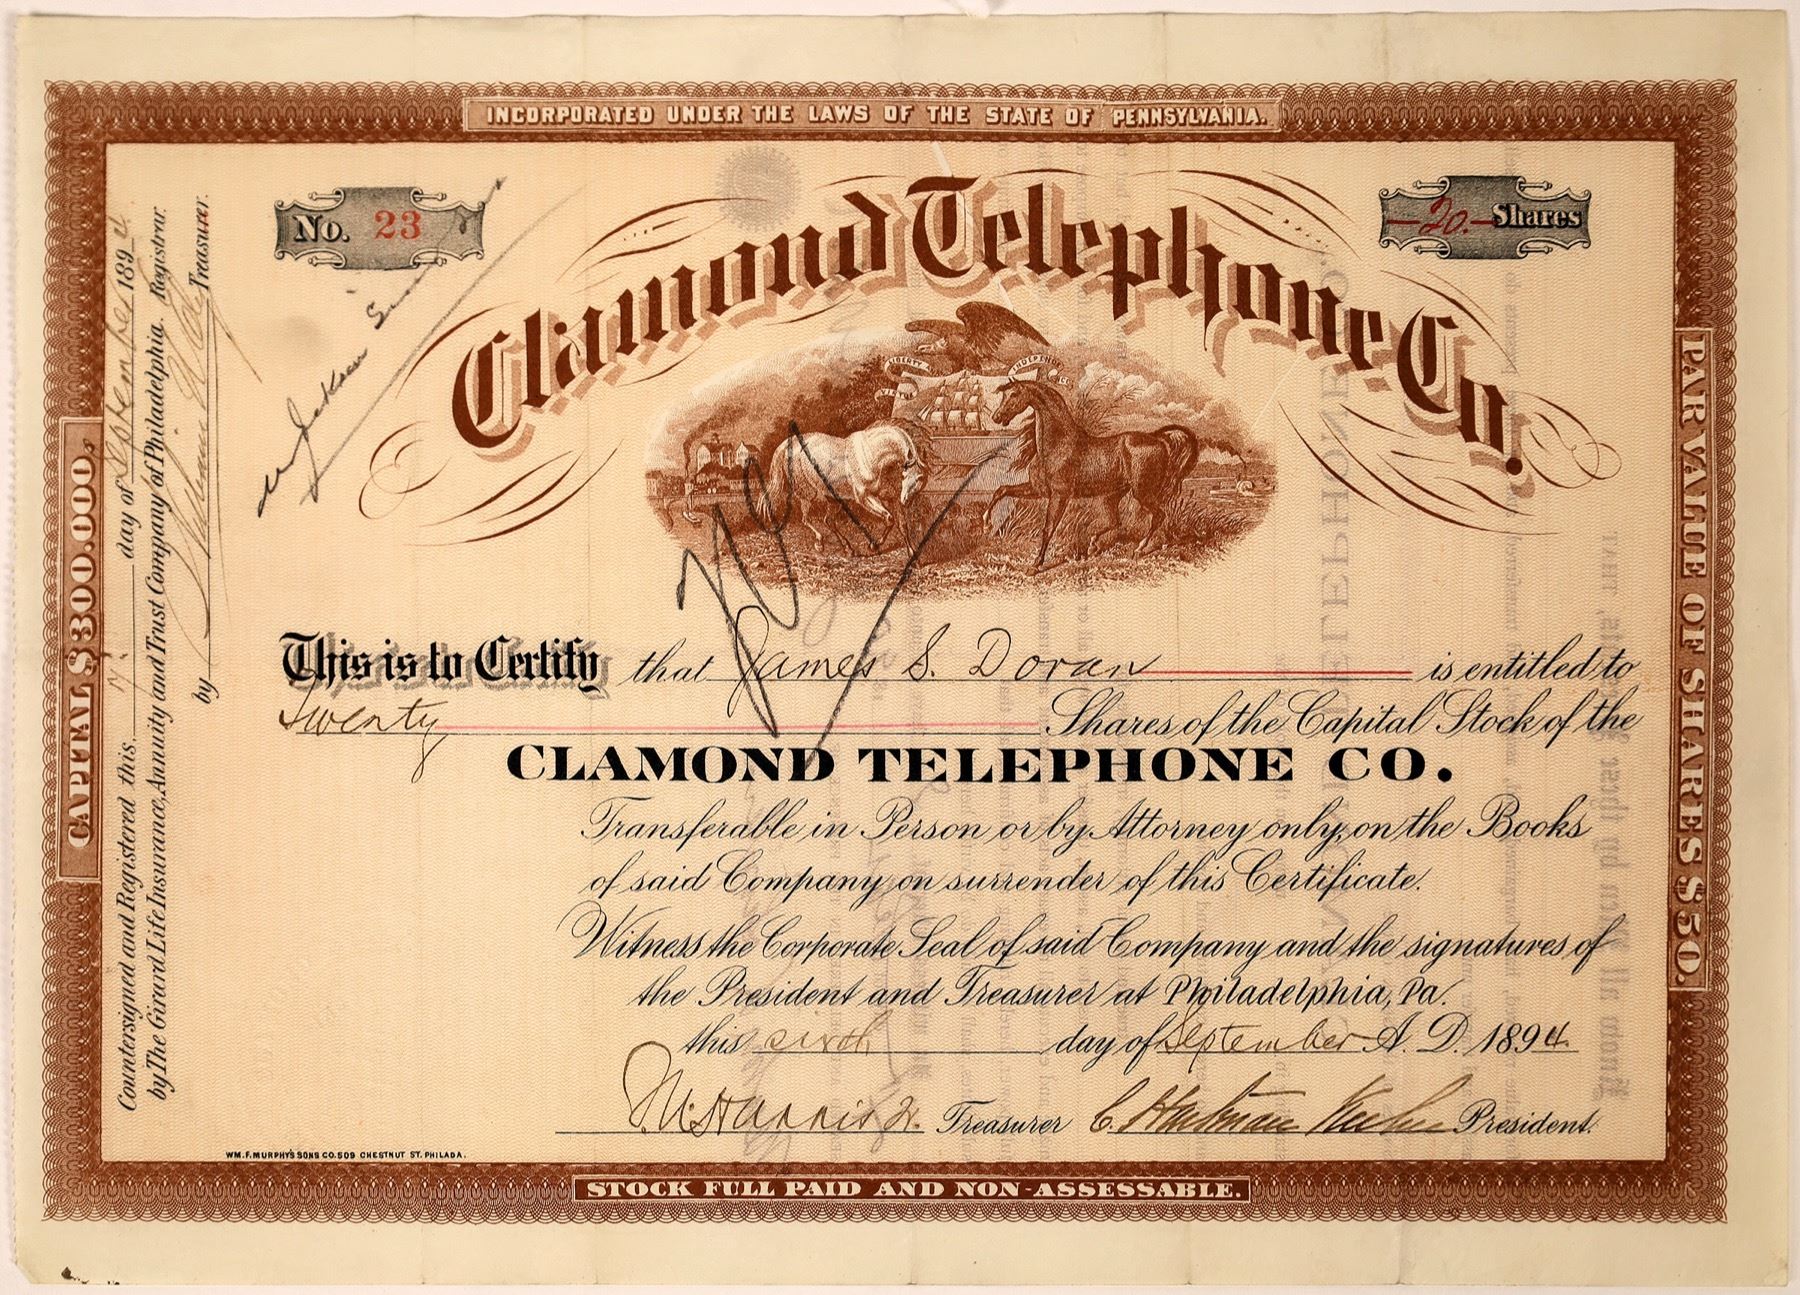 INCORPORATED UNDER THE LAWS OF THE STATE OF PENNSYLVANIA.
No. 23
20. Shares
Clamond Telephone Co.
LIBERTY
INDEPENDENCE
VIRTUE
This is to Certify that James S. Doran is entitled to
Twenty Shares of the Capital Stock of the
CLAMOND TELEPHONE CO.
Transferable in Person or by Attorney only, on the Books
of said Company on surrender of this Certificate.
Witness the Corporate Seal of said Company and the signatures of
the President and Treasurer at Philadelphia, Pa.
this sixth day of September A. D. 1894.
Treasurer C. Hartman Kuhn President.
WM. F. MURPHY'S SONS CO. 509 CHESTNUT ST. PHILADA.
STOCK FULL PAID AND NON-ASSESSABLE.
CAPITAL $300.000.
Countersigned and Registered this 7. day of September 1894
by The Girard Life Insurance, Annuity and Trust Company of Philadelphia. Registrar.
by Treasurer.
PAR VALUE OF SHARES $50.